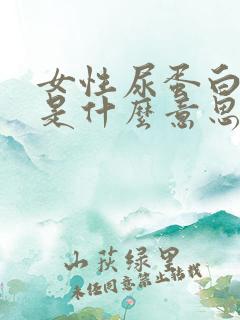 女性尿蛋白
是什麼意思
山荻绿里
未经同意禁止转载